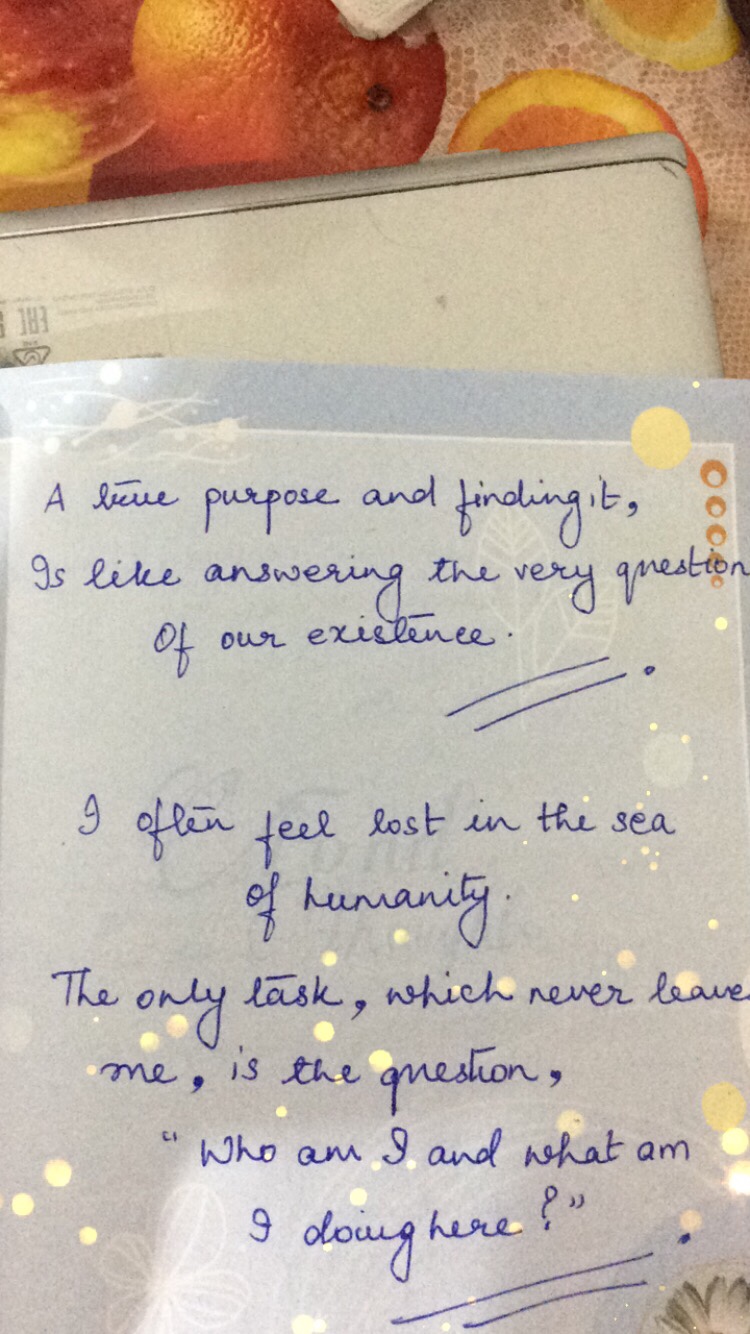 A true purpose and finding it,
Is like answering the very question
Of our existence.
I often feel lost in the sea
of humanity.
The only task, which never leave
me, is the question,
"Who am I and what am
I doing here?"